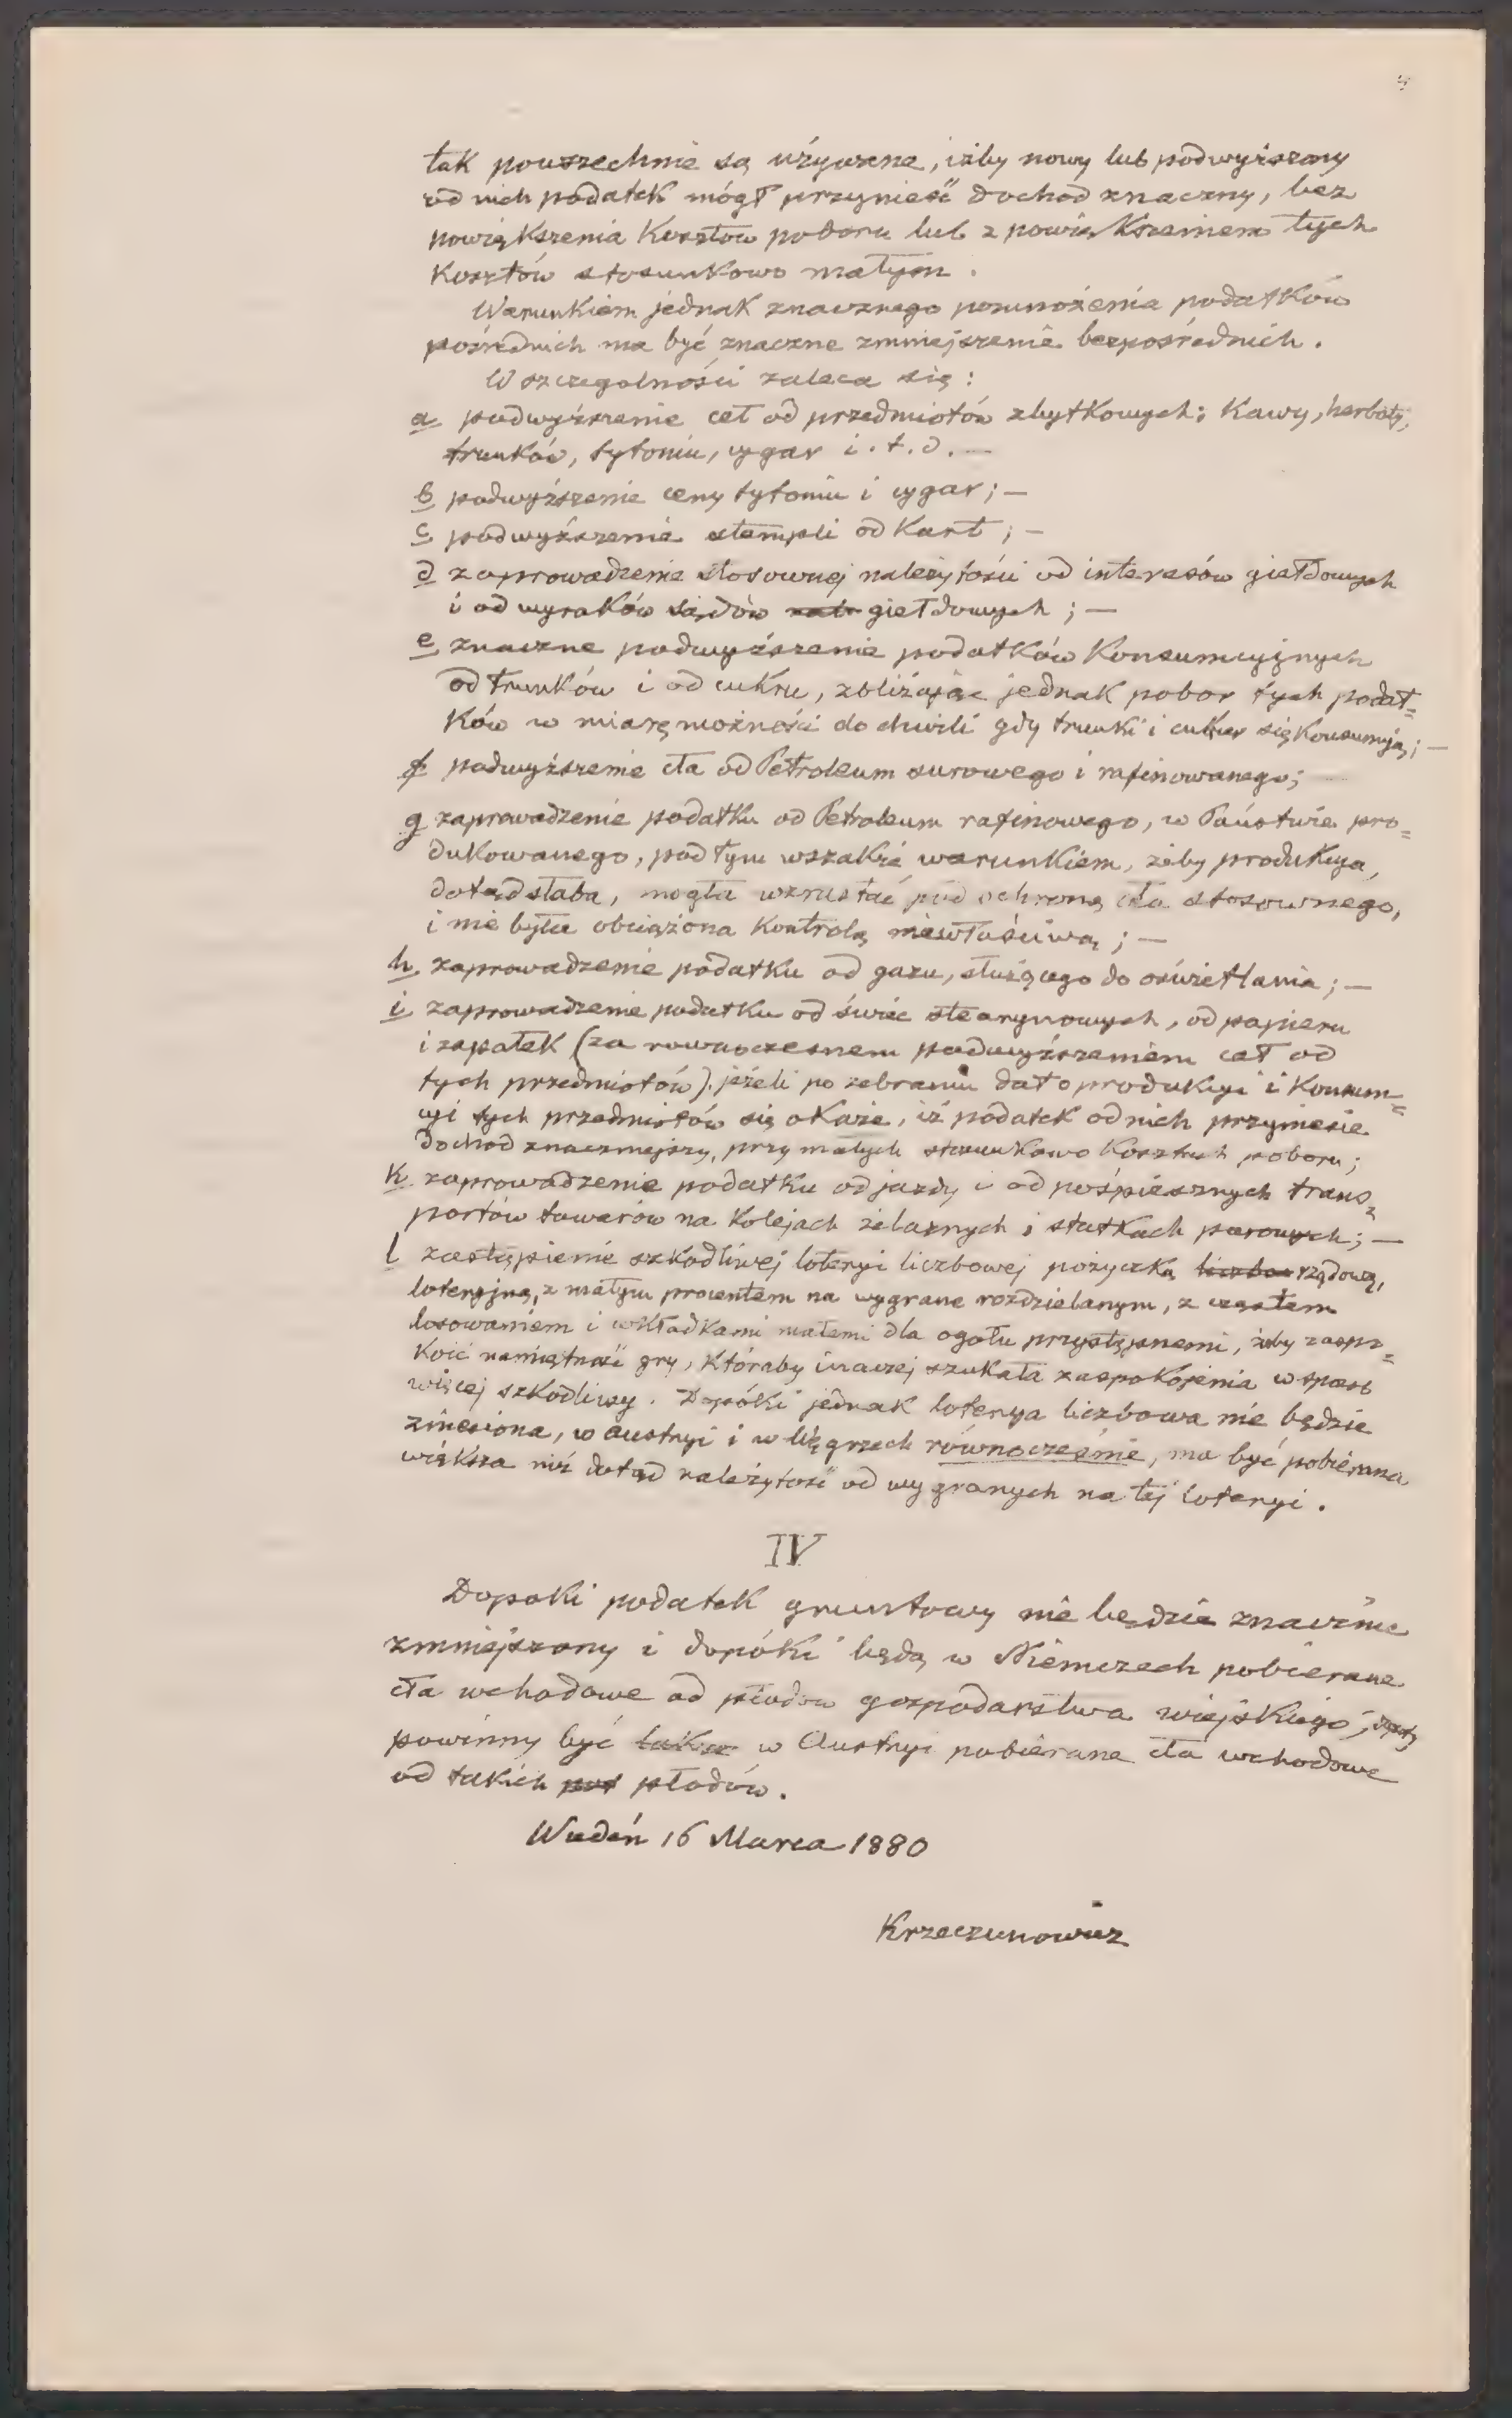 tak powszechnie są używane, iżby nowy lub podwyższony
od nich podatek mógł przynieść dochod znaczny, bez
powiększenia Kosztow poboru lub z powiększeniem tych
Kosztów stosunkowo małym.
Warunkiem jednak znacznego pomnożenia podatków
pośrednich ma być znaczne zmniejszenie bezpośrednich.
W szczegolności zaleca się:
a podwyższenie ceł od przedmiotów zbytkowych; Kawy, herbaty,
trunków, tytoniu, cygar i.t.d.—
b podwyższenie ceny tytoniu i cygar;—
c podwyższenie stempli od Kart;—
d zaprowadzenie stosownej należytości od interesów giełdowych
i od wyroków sądów giełdowych;—
e znaczne podwyższenie podatków Konsumcyjnych
od trunków i od cukru, zbliżając jednak pobor tych podat=
ków w miarę możności do chwili gdy trunki i cukier się Konsumują;—
f podwyższenie cła od Petroleum surowego i rafinowanego;
g zaprowadzenie podatku od Petroleum rafinowego, w Państwie pro=
dukowanego, pod tym wszakże warunkiem, żeby produkcya,
dotąd słaba, mogła wzrastać pod ochroną cła stosownego,
i nie była obciążona Kontrolą niewłaściwą;—
h zaprowadzenie podatku od gazu, służącego do oświetlania;—
i zaprowadzenie podatku od świec stearynowych, od papieru
i zapałek (za rownoczesnem podwyższeniem ceł od
tych przedmiotów), jeżeli po zebraniu dat o produkcyi i Konsum=
cyi tych przedmiotów się okaże, iż podatek od nich przyniesie
dochod znaczniejszy, przy małych stosunkowo Kosztach poboru;
k zaprowadzenie podatku od jazdy i od pośpiesznych trans=
portów towarów na Kolejach żelaznych i statkach parowych;—
l zastąpienie szkodliwej loteryi liczbowej pożyczką liczbow rządową,
loteryjną, z małym procentem na wygrane rozdzielanym, z częstem
losowaniem i wkładkami małemi dla ogołu przystępnemi, żeby zaspo=
Koić namiętność gry, Któraby inaczej szukała zaspokojenia w sposób
więcej szkodliwy. Dopóki jednak loterya liczbowa nie będzie
zniesiona, w Austryi i w Węgrzech równocześnie, ma być pobierana
większa niż dotąd należytość od wygranych na tej loteryi.
IV
Dopoki podatek gruntowy nie będzie znacznie
zmniejszony i dopóki będą w Niemczech pobierane
cła wchodowe od płodow gospodarstwa wiejskiego,
powinny być także w Austryi pobierane cła wchodowe
od takich płodów.
Wiedeń 16 Marca 1880
Krzeczunowicz